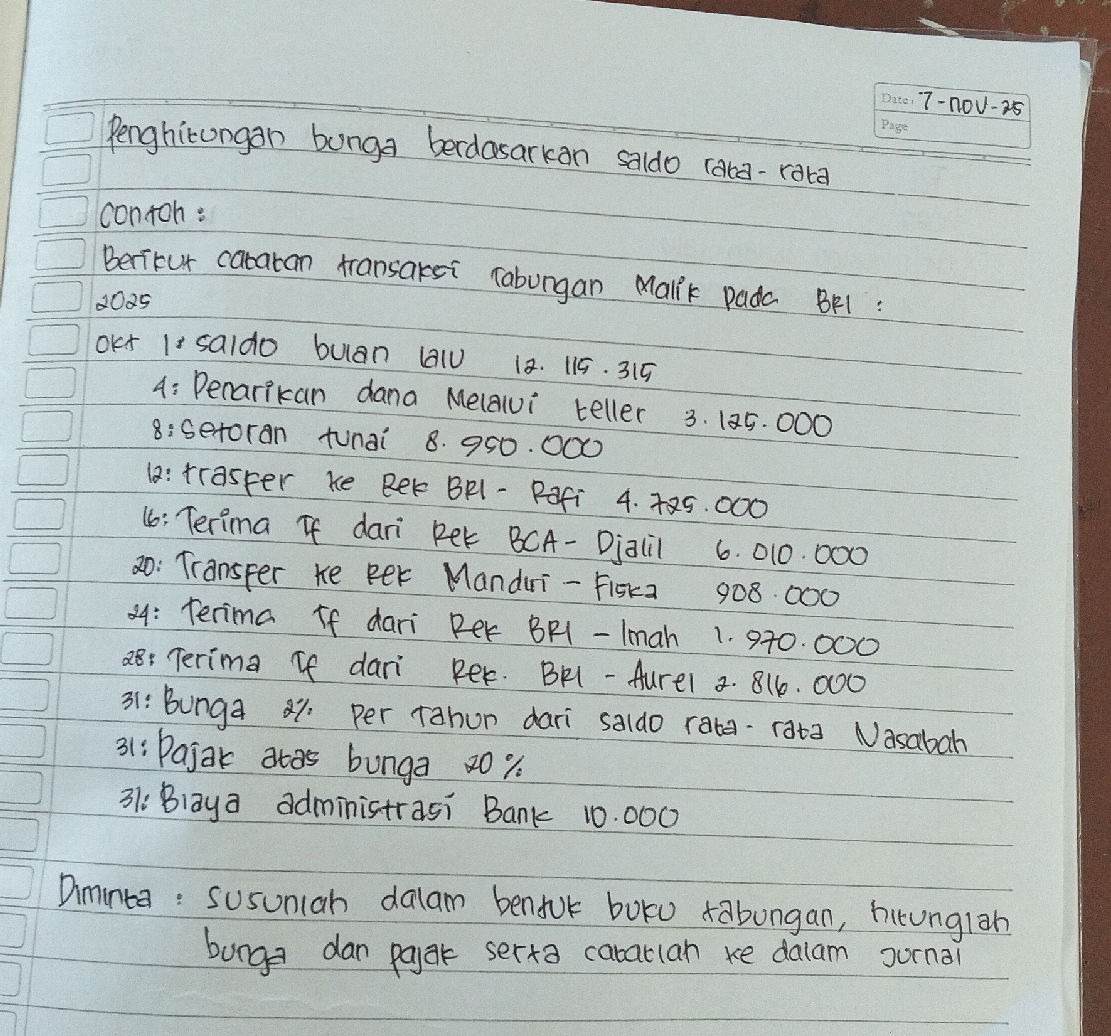 Date: 7-nov-25
Page
Penghitungan bunga berdasarkan saldo rata-rata
contoh :
Berikut catatan transaksi tabungan Malik pada BRI :
2025
Okt 1: saldo bulan lalu 12.115.315
4: Penarikan dana Melalui teller 3.125.000
8: setoran tunai 8.950.000
12: trasfer ke Rek BRI - Rafi 4.725.000
16: Terima Tf dari Rek BCA - Djalil 6.010.000
20: Transfer ke Rek Mandiri - Fiska 908.000
24: Terima Tf dari Rek BRI - Imah 1.970.000
28: Terima Tf dari Rek. BRI - Aurel 2.816.000
31: Bunga 2% per tahun dari saldo rata-rata Nasabah
31: Pajak atas bunga 20%
31: Biaya administrasi Bank 10.000
Diminta : susunlah dalam bentuk buku tabungan, hitunglah
bunga dan pajak serta catatlah ke dalam jurnal